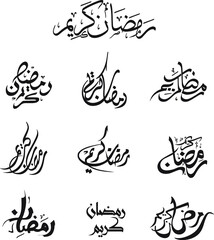 رمضان كريم
رمضان كريم
رمضان كريم
رمضان كريم
رمضان كريم
رمضان كريم
رمضان كريم
رمضان كريم
رمضان
كريم
رمضان كريم